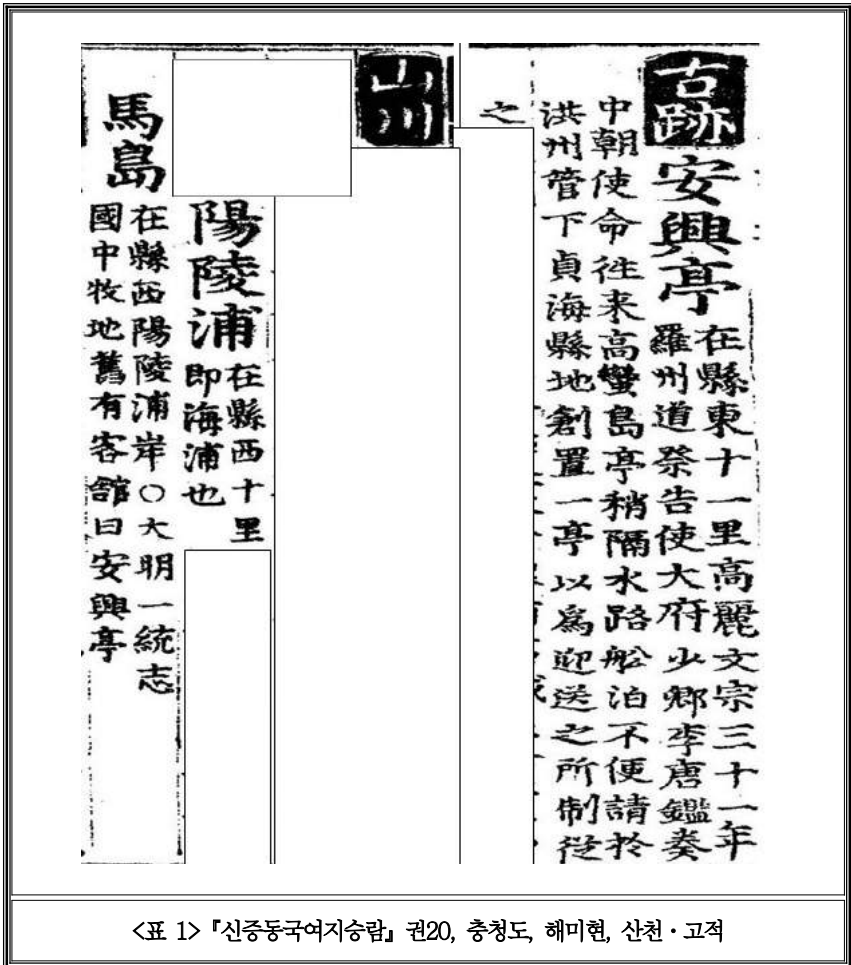 古跡
安興亭
在縣東十一里高麗文宗三十一年
羅州道祭告使大府少卿李唐鑑奏
中朝使命往来高蠻島亭稍隔水路船泊不便請於
洪州管下貞海縣地創置一亭以爲迎送之所制從
之
山川
陽陵浦
在縣西十里
即海浦也
馬島
在縣西陽陵浦岸○大明一統志
國中牧地舊有客舘曰安興亭
<표 1>『신증동국여지승람』 권20, 충청도, 해미현, 산천・고적